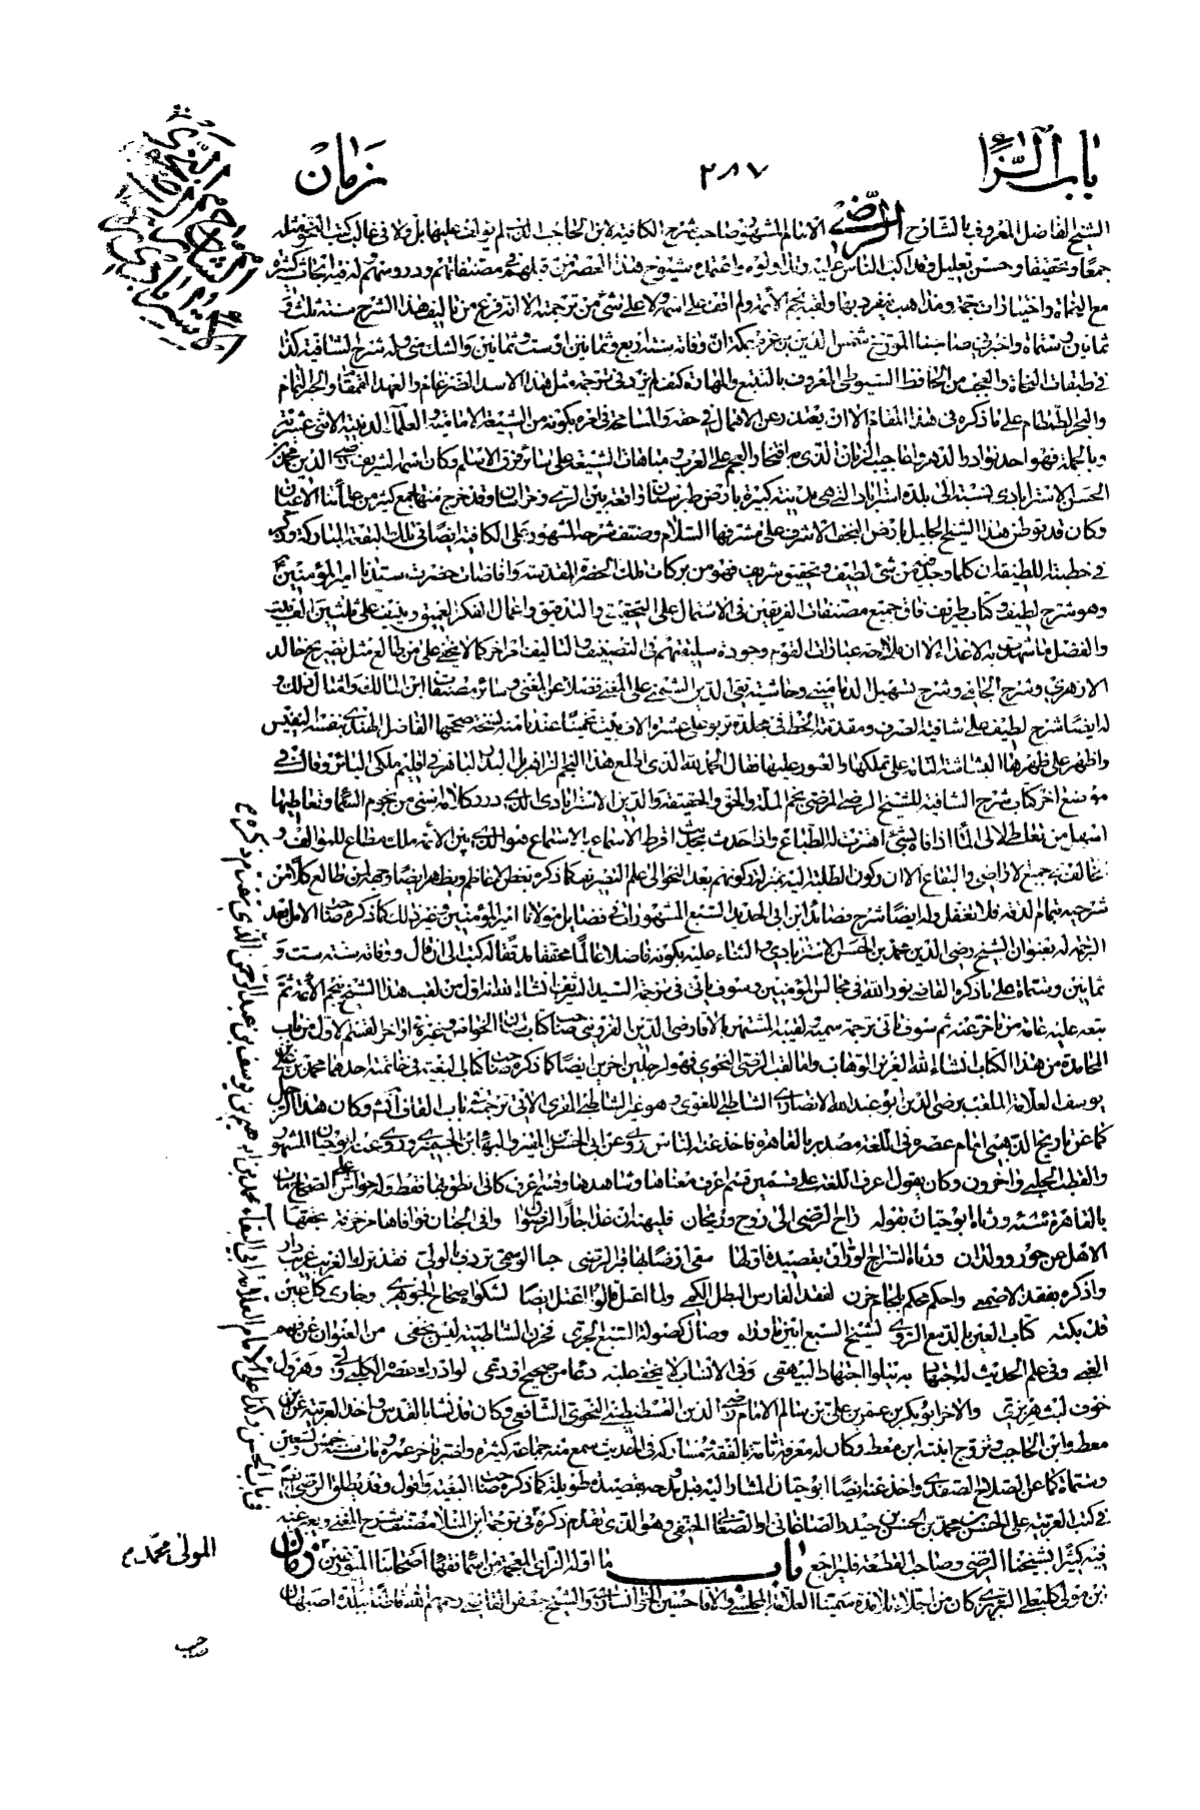 باب الراء
٢٨٧
زمان
الشيخ الفاضل المعروف بالشارح الرضي الامام المشهور صاحب شرح الكافية لابن الحاجب الذي لم يؤلف عليها بل ولا في غالب كتب النحو مثله
جمعا وتحقيقا وحسن تعليل وقد اكب الناس عليه وتداولوه واعتمده شيوخ هذا العصر فمن قبلهم في مصنفاتهم ودروسهم وله فيه ابحاث كثيرة
مع النحاة واختيارات جمة ومذاهب ينفرد بها ولقبه نجم الائمة ولم اقف على اسمه ولا على شئ من ترجمته الا انه فرغ من تاليف هذا الشرح سنة ثلث و
ثمانين وستمائة واخبرني صاحبنا المورخ شمس الدين بن عزم بمكة ان وفاته سنة اربع وثمانين او ست وثمانين والشك مني وله شرح الشافية كذا
في طبقات النحاة والعجب من الحافظ السيوطي المعروف بالتتبع والمهارة كيف لم يزد في ترجمة مثل هذا الاسد الضرغام والعهد القمقام والحبر التمام
والبحر الطمطام على ما ذكره في هذا المقام الا ان يعتذر عن الاهمال في حقه والمسامحة في امره بكونه من الشيعة الامامية والعلماء الدينية الاثني عشرية
وبالجملة فهو احد نوادر الدهر واعاجيب الزمان الذي به افتخار العجم على العرب ومباهات الشيعة على سائر فرق الاسلم وكان اسمه الشريف رضي الدين محمد بن
الحسن الاسترابادي نسبته الى بلدة استراباد التي هي مدينة كبيرة بارض طبرستان واقعة بين الري وخراسان وقد خرج منها جمع كثير من علمائنا الاعيان
وكان قد توطن هذا الشيخ الجليل بارض النجف الاشرف على مشرفها السلام وصنف شرحه المشهور على الكافية ايضا في تلك البقعة المباركة وذكر
في خطبته اللطيفة ان كلما وجد فيه من شئ لطيف وتحقيق شريف فهو من بركات تلك الحضرة المقدسة وافاضات حضرت سيدنا امير المؤمنين
وهو شرح لطيف وكتاب طريف فاق جميع مصنفات الفريقين في الاشتمال على التحقيق والتدقيق واعمال الفكر العميق وينيف على ثلثين الف بيت
والفضل ما شهدت به الاعداء الا ان ملاحة عبارات القوم وجودة سليقتهم في التصنيف والتاليف امر اخر كما لا يخفى على من طالع مثل تصريح خالد
الازهري وشرح الجامي وشرح تسهيل الدماميني وحاشية تقي الدين الشمني على المغني فضلا عن المغني وسائر مصنفات ابن المالك وامثال ذلك و
له ايضا شرح لطيف على شافية الصرف ومقدمة الخط في مجلدة تربو على عشرة الاف بيت تخمينا عندنا منه نسخة صححها الفاضل الهندي بنفسه النفيس
واظهر على ظهرها البشاشة التامة على تملكها والعبور عليها فقال الحمد لله الذي اطلع هذا النجم الزاهر بل البدر الباهر في اقليم ملكي البائر وقال في
موضع اخر كتاب شرح الشافية للشيخ الرضي المرضي نجم الملة والحق والحقيقة والدين الاسترابادي الذي درر كلامه اسنى من نجوم السماء وتعاطيها
اسهل من تعاطي لالئ الماء اذا فاه بشئ اهتزت له الطباع واذا حدث بحديث اقرط الاسماع بالاستماع هو الذي بين الائمة ملك مطاع للمؤالف و
المخالف في جميع الاراضي والبقاع الا ان ركون الطلبة اليه بمنزلة ركونهم بعد النحو الى علم التصريف كما ذكره بعض الاعاظم ويظهر ايضا وجهه لمن طالع كلا من
شرحيه بتمام الدقة فلا تغفل وله ايضا شرح قصائد ابن ابي الحديد السبع المشهورات في فضايل مولانا امير المؤمنين وغير ذلك كما ذكره صاحب الامل بعد
الترجمة له بعنوان الشيخ رضي الدين محمد بن الحسن الاسترابادي والثناء عليه بكونه فاضلا عالما محققا مدققا له كتب الى ان قال ووفاته سنة ست و
ثمانين وستمائة على ما ذكره القاضي نور الله في مجالس المؤمنين وسوف ياتي في ترجمة السيد الشريف انشاء الله انه اول من لقب هذا الشيخ بنجم الائمة ثم
تبعه عليه عامة من تاخر عنه ثم سوف ياتي ترجمة سميه ولقيبه المشتهر بالاقا رضي الدين القزويني صاحب كتاب لسان الخواص وغيره اواخر القسم الاول من باب
المحامدة من هذا الكتاب انشاء الله العزيز الوهاب واما لقب الرضي النحوي فهو لرجلين اخرين ايضا كما ذكره صاحب كتاب البغية في خاتمته احدهما محمد بن علي بن
يوسف العلامة الملقب برضي الدين ابو عبد الله الانصاري الشاطبي اللغوي وهو غير الشاطبي المقري الاتي ترجمته في باب القاف وكان هذا الرجل
كما عن تاريخ الذهبي امام عصره في اللغة مصدر بالقاهرة فاخذ عنه الناس روى عن ابي الحسن المقير والبهاء ابن الجميزي وروى عنه ابو حيان المشهور
والقطب الحلبي واخرون وكان يقول اعرف اللغة على قسمين قسم اعرف معناها وشاهدها وقسم اعرف كاني انطق بها فقط وله حواش على الصحاح مات
بالقاهرة سنة ورثاه ابو حيان بقوله راح الرضي الى روح وريحان فليهنه ان غدا جارا لرضوان وافى الجنان فوافاها مزخرفة بحققها
الاهل من حور وولدان ورثاه السراج الوراق بقصيدة اولها سقى ارضا بها قبر الرضي حيا الوسمي تردف الولي فقد ترك الغريب غريب دار
واذكره بفقد الاصمعي واحكم محكم بلجام حزن لفقد الفارس البطل الكمي ولما اعتل قالوا اعتل ايضا لشكواه صحاح الجوهري وجارى كل عين
قد بكته كتاب العين بالدمع الروي لشيخ السبع ابين ما رواه وصال كصولة السبع الجري فحرز الشاطبية ليس يخفى من العنوان عن فهم
الغبي وفي علم الحديث له اجتهاد به يتلوا اجتهاد البيهقي وفي الانساب لا يخفى عليه دعا من صحيح او دعي لو ادرك عصره الكلبي ولى وهرول
خوف ليث هزبري والاخر ابو بكر بن عمر بن علي بن سالم الامام رضي الدين القسطنطيني النحوي الشافعي وكان قد نشا بالقدس واخذ العربية عن ابن
معط وابن الحاجب وتزوج ابنة ابن معط وكان له معرفة تامة بالفقه ومشاركة في الحديث سمع منه جماعة كثيرة واضر باخر عمره ومات سنة خمس وتسعين
وستمائة كما عن الصلاح الصفدي واخذ عنه ايضا ابو حيان المشار اليه قبل ومدحه بقصيدة طويلة كما ذكره صاحب البغية واقول وقد يطلق الرضي ايضا
في كتب العربية على الحسن بن محمد بن الحسن بن حيدر الصاغاني او الصغاني الحنفي وهو الذي تقدم ذكره في ترجمة ابن الملا مصنف شرح المغني ويعبر عنه
فيه كثيرا بشيخنا الرضي وصاحب القطعة فليراجع باب ما اوله الزاي المعجمة من اسماء فقهاء اصحابنا المتوفين زمان
بن مولى كلبعلي التبريزي كان من اجلاء تلامذة سمينا العلامة المجلسي والاقا حسين الخوانساري والشيخ جعفر القاضي رحمهم الله قاطنا ببلدة اصبهان
المولى محمد